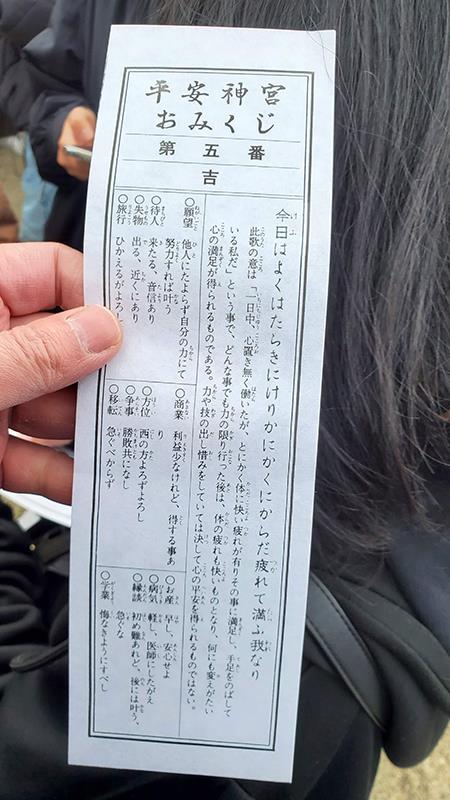 平安神宮
おみくじ
第五番
吉
今日はよくはたらきにけりかにかくにからだ疲れて満ふ我なり
此歌の意は「一日中、心置き無く働いたが、とにかく体に快い疲れが有りその事に満足し、手足をのばして
いる私だ」という事で、どんな事でも力の限り行った後は、体の疲れも快いものとなり、何にも変えがたい
心の満足が得られるものである。力や技の出し惜みをしていては決して心の平安を得られるものではない。
○願望 他人にたよらず自分の力にて
努力すれば叶う
○待人 来たる、音信あり
○失物 出る、近くにあり
○旅行 ひかえるがよろし
○商業 利益少なけれど、得する事あ
り
○方位 西の方よろずよろし
○争事 勝敗共になし
○移転 急ぐべからず
○お産 早し、安心せよ
○病気 軽し、医師にしたがえ
○縁談 初め難あれど、後には叶う、
急ぐな
○学業 悔なきようにすべし